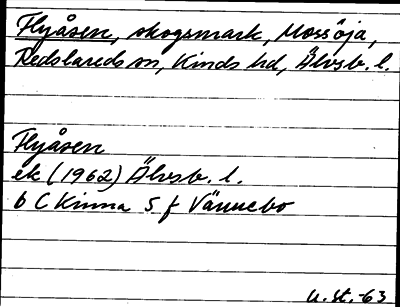 Flyåsen, skogsmark, Mossöja,
Redslareds sn, Kinds hd, Älvsb. l.
Flyåsen
ek (1962) Älvsb. l.
6 C Kinna 5 f Vännebo
U. St. -63